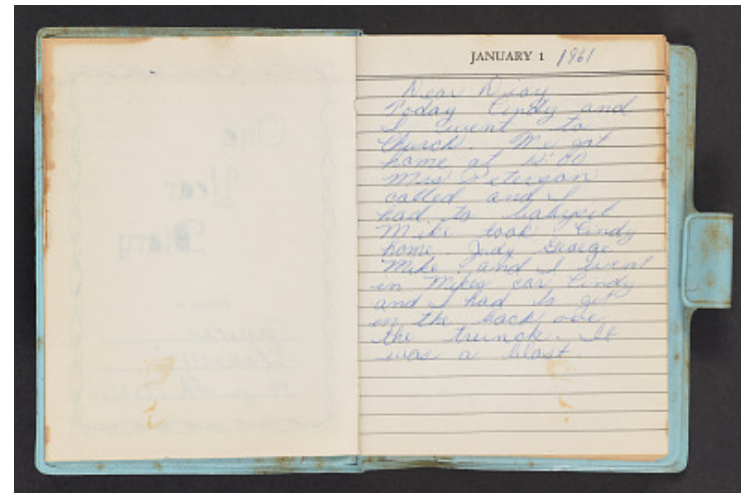 JANUARY 1 1961
Dear Diay
Today Cindy and
I went to
church. We got
home at 12:00
Mrs Peterson
called and I
had to babysit
Mike took Cindy
home. Judy George
Mike and I went
in Mikes car Cindy
and I had to get
in the back over
the trunck. It
was a blast.
One
Year
Diary